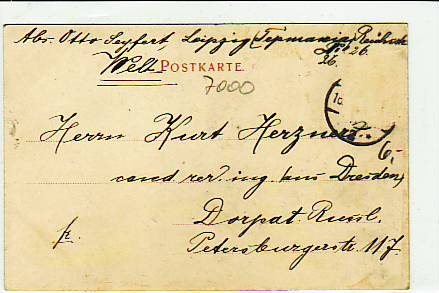 Abs. Otto Seyfert, Leipzig
26.
26.
Welt POSTKARTE.
7000
Herrn Kurt Herzner
6,-
cand rer. ing. (aus Dresden)
Dorpat. Russl.
fr.
Petersburgerstr. 117.